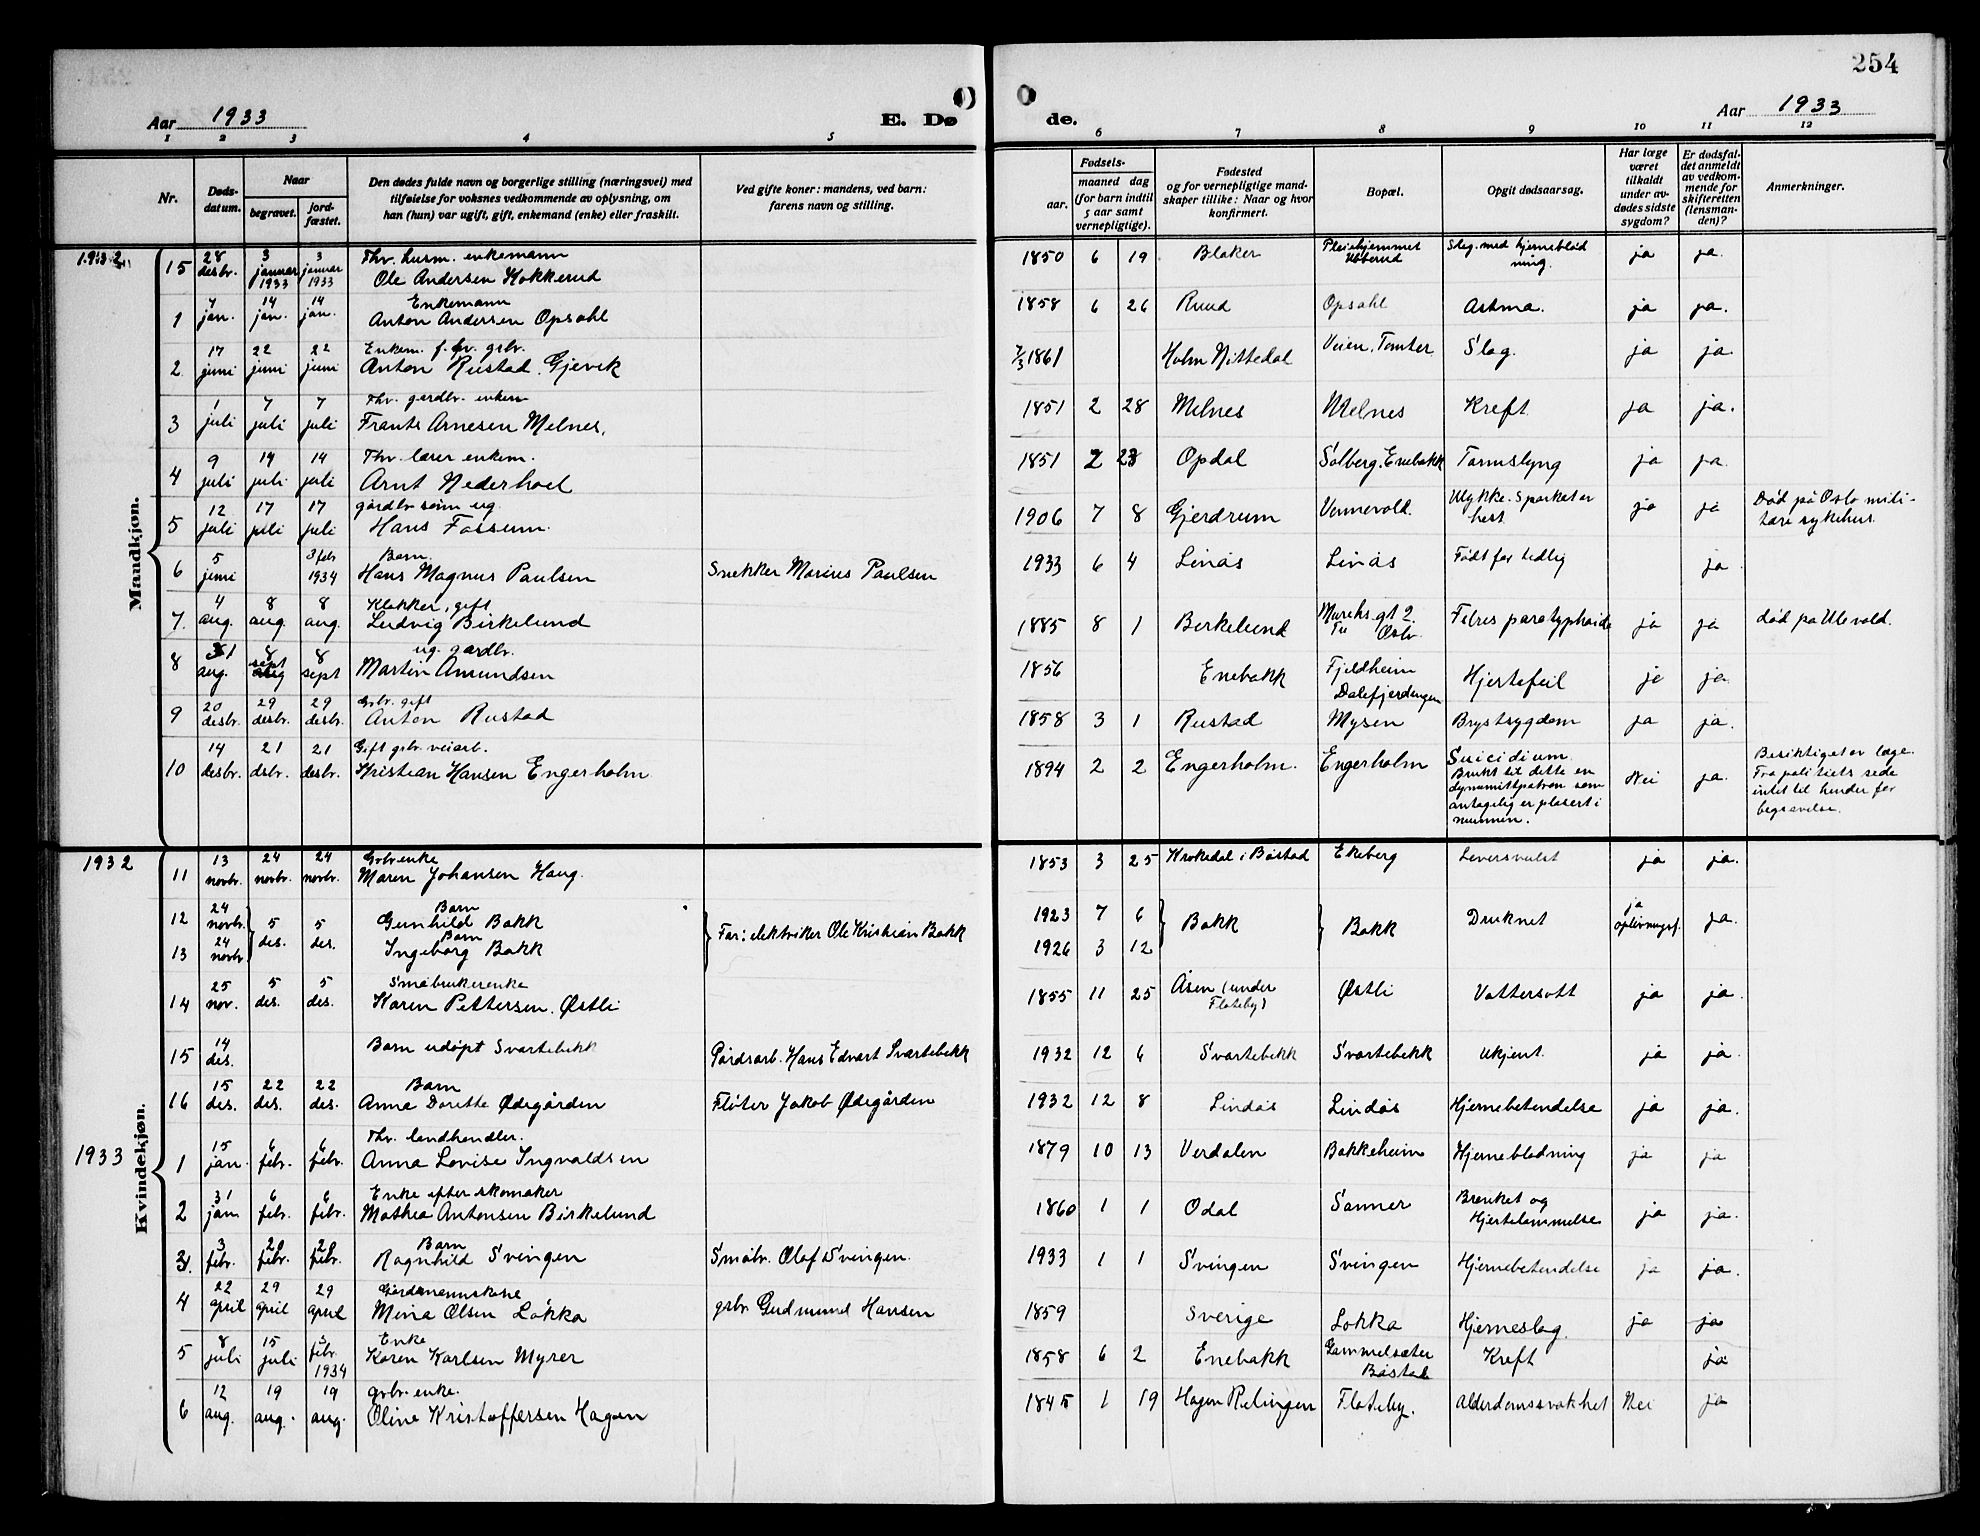 254
Aar 1933
E. Dø
de.
Aar 1933
1 2 3 4 5 6 7 8 9 10 11 12
Nr.
Døds-
datum.
Naar
begravet.
jord-
fæstet.
Den dødes fulde navn og borgerlige stilling (næringsvei) med
tilføielse for voksnes vedkommende av oplysning, om
han (hun) var ugift, gift, enkemand (enke) eller fraskilt.
Ved gifte koner: mandens, ved barn:
farens navn og stilling.
Fødsels-
aar.
maaned dag
(for barn indtil
5 aar samt
vernepligtige).
Fødested
og for vernepligtige mand-
skaper tillike: Naar og hvor
konfirmert.
Bopæl.
Opgit dødsaarsag.
Har læge
været
tilkaldt
under av-
dødes sidste
sygdom?
Er dødsfal-
det anmeldt
av vedkom-
mende for
skifteretten
(lensman-
den)?
Anmerkninger.
Mandkjøn.
1932
15 28 desbr. 3 januar 1933 3 januar 1933
Fhv. husm. enkemann
Ole Andersen Kokkerud
1850 6 19 Blaker Pleiehjemmet Ubberud Slag med hjerneblødning. ja ja.
1 7 jan. 14 jan. 14 jan.
Enkemann
Anton Andersen Opsahl
1858 6 26 Ruud Opsahl Astma. ja ja.
2 17 juni 22 juni 22 juni
Enkem. f. hv. gsbr.
Anton Rustad. Gjevik
7/3 1861 Holm Nittedal Veien. Tomter Slag. ja ja.
3 1 juli 7 juli 7 juli
Fhv. gardbr. enkem
Frants Arnesen Melnes.
1851 2 28 Melnes Melnes Kreft ja ja.
4 9 juli 14 juli 14 juli
Fhv. lærer enkem.
Arnt Nederhoel
1851 2 23 Opdal Solberg. Enebakk Tarmslyng ja ja.
5 12 juli 17 juli 17 juli
gårdbr sønn ug.
Hans Fossum.
1906 7 8 Gjerdrum Vennevold. Ulykke. Sparket av hest ja ja Død på Oslo mili-
tære sykehus.
6 5 juni 3 febr 1934
Barn.
Hans Magnus Paulsen Snekker Marius Paulsen
1933 6 4 Linås Linås Født for tidlig ja
7. 4 aug. 8 aug. 8 aug.
Klokker, gift
Ludvig Birkelund
1885 8 1 Berkelund Munchs gt 2. Oslo. Febris paratyphoide ja ja død på Ulevold.
8 31 aug. 8 sept 8 sept
ug. gardbr.
Martin Amundsen
1856 Enebakk Fjeldheim Dalefjerdingen Hjertefeil ja ja
9 20 desbr. 29 desbr. 29 desbr.
Gsbr. gift
Anton Rustad
1858 3 1 Rustad Mysen Brystsygdom ja ja.
10 14 desbr. 21 dsbr. 21 desbr.
Gift gsbr. veiarb.
Kristian Hansen Engerholm
1894 2 2 Engerholm. Engerholm Suicidium.
Brukt til dette en
dynamittpatron som
antagelig er plasert i
munnen.
Nei ja.
Besiktiget av læge.
Fra politiets side
intet til hinder for
begravelse.
Kvindekjøn.
1932
11 13 novbr. 24 novbr. 24 novbr.
Gsbr enke
Maren Johansen Haug.
1853 3 25 Krokedal i Båstad Ekeberg Leversvulst ja ja.
12 24 novbr. 5 des. 5 des.
Barn
Gunhild Bakk
Far: elektriker Ole Kristian Bakk
1923 7 6 Bakk Bakk Druknet ja oplivningsf. ja.
13 24 novbr
Barn
Ingeborg Bakk
1926 3 12
14 25 nov. 5 des. 5 des.
Småbrukerenke
Karen Pettersen. Østli
1855 11 25 Åsen (under Flateby) Østli Vattersott ja ja.
15 14 des.
Barn udøpt Svartebekk Gårdsarb. Hans Edvart Svartebekk
1932 12 6 Svartebekk Svartebekk ukjent. ja ja.
16 15 des. 22 des. 22 des.
Barn
Anna Dorette Ødegården Fløter Jakob Ødegården
1932 12 8 Lindås Lindås Hjernebetendelse ja ja.
1933
1 15 jan. 6 febr. 6 febr.
Fhv. landhandler.
Anna Lovise Ingvaldsen
1879 10 13 Verdalen Bakkeheim Hjerneblødning ja ja
2 31 jan 6 febr. 6 febr.
Enke efter skomaker
Mathea Antonsen Birkelund
1860 1 1 Odal Sanner Bronket og
Hjertelammelse ja ja.
3. 3 febr. 20 febr. 20 febr.
Barn
Ragnhild Svingen Småbr. Olaf Svingen.
1933 1 1 Svingen Svingen Hjernebetendelse ja ja.
4 22 april 29 april 29 april
Gårdmannskone
Mina Olsen Løkka gsbr Gudmund Hansen
1859 Sverige Løkka Hjerneslag. ja ja
5 8 juli 15 juli 3 febr. 1934
Enke
Karen Karlsen Myrer
1858 6 2 Enebakk Gammelsæter Båstad Kreft ja
6 12 aug. 19 aug. 19 aug.
gsbr. enke.
Oline Kristoffersen Hagen
1845 1 19 Hagen Relingen Flateby. Alderdomssvakhet Nei ja